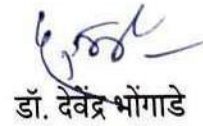 डॉ. देवेंद्र भोंगाडे